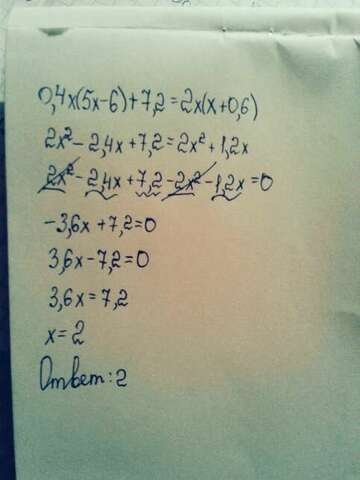 0,4x(5x-6)+7,2=2x(x+0,6)
2x²-2,4x+7,2=2x²+1,2x
2x²-2,4x+7,2-2x²-1,2x=0
-3,6x+7,2=0
3,6x-7,2=0
3,6x=7,2
x=2
Ответ: 2